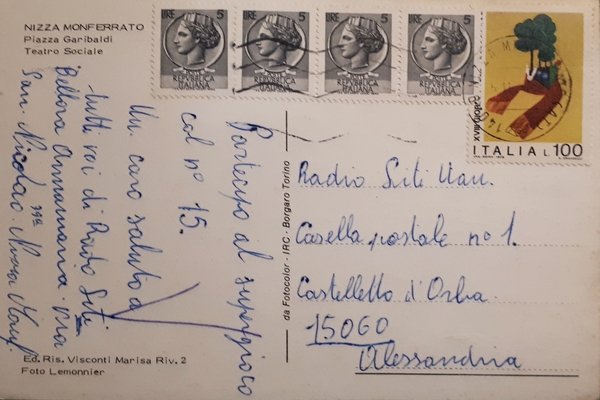 NIZZA MONFERRATO
Piazza Garibaldi
Teatro Sociale
LIRE 5
REPUBBLICA
ITALIANA
LIRE 5
REPUBBLICA
ITALIANA
LIRE 5
REPUBBLICA
ITALIANA
LIRE 5
REPUBBLICA
ITALIANA
ITALIA L.100
Partecipo al supergioco
col n° 15.
Un caro saluto a
tutti voi di Radio Siti
Bellora Annamaria. via
San. Nicolao.
Nizza Monf.
da Fotocolor - IRC - Borgaro Torino
Radio Siti Uau.
Casella postale n° 1.
Castelletto d'Orba
15060
Alessandria
Ed. Ris. Visconti Marisa Riv. 2
Foto Lemonnier